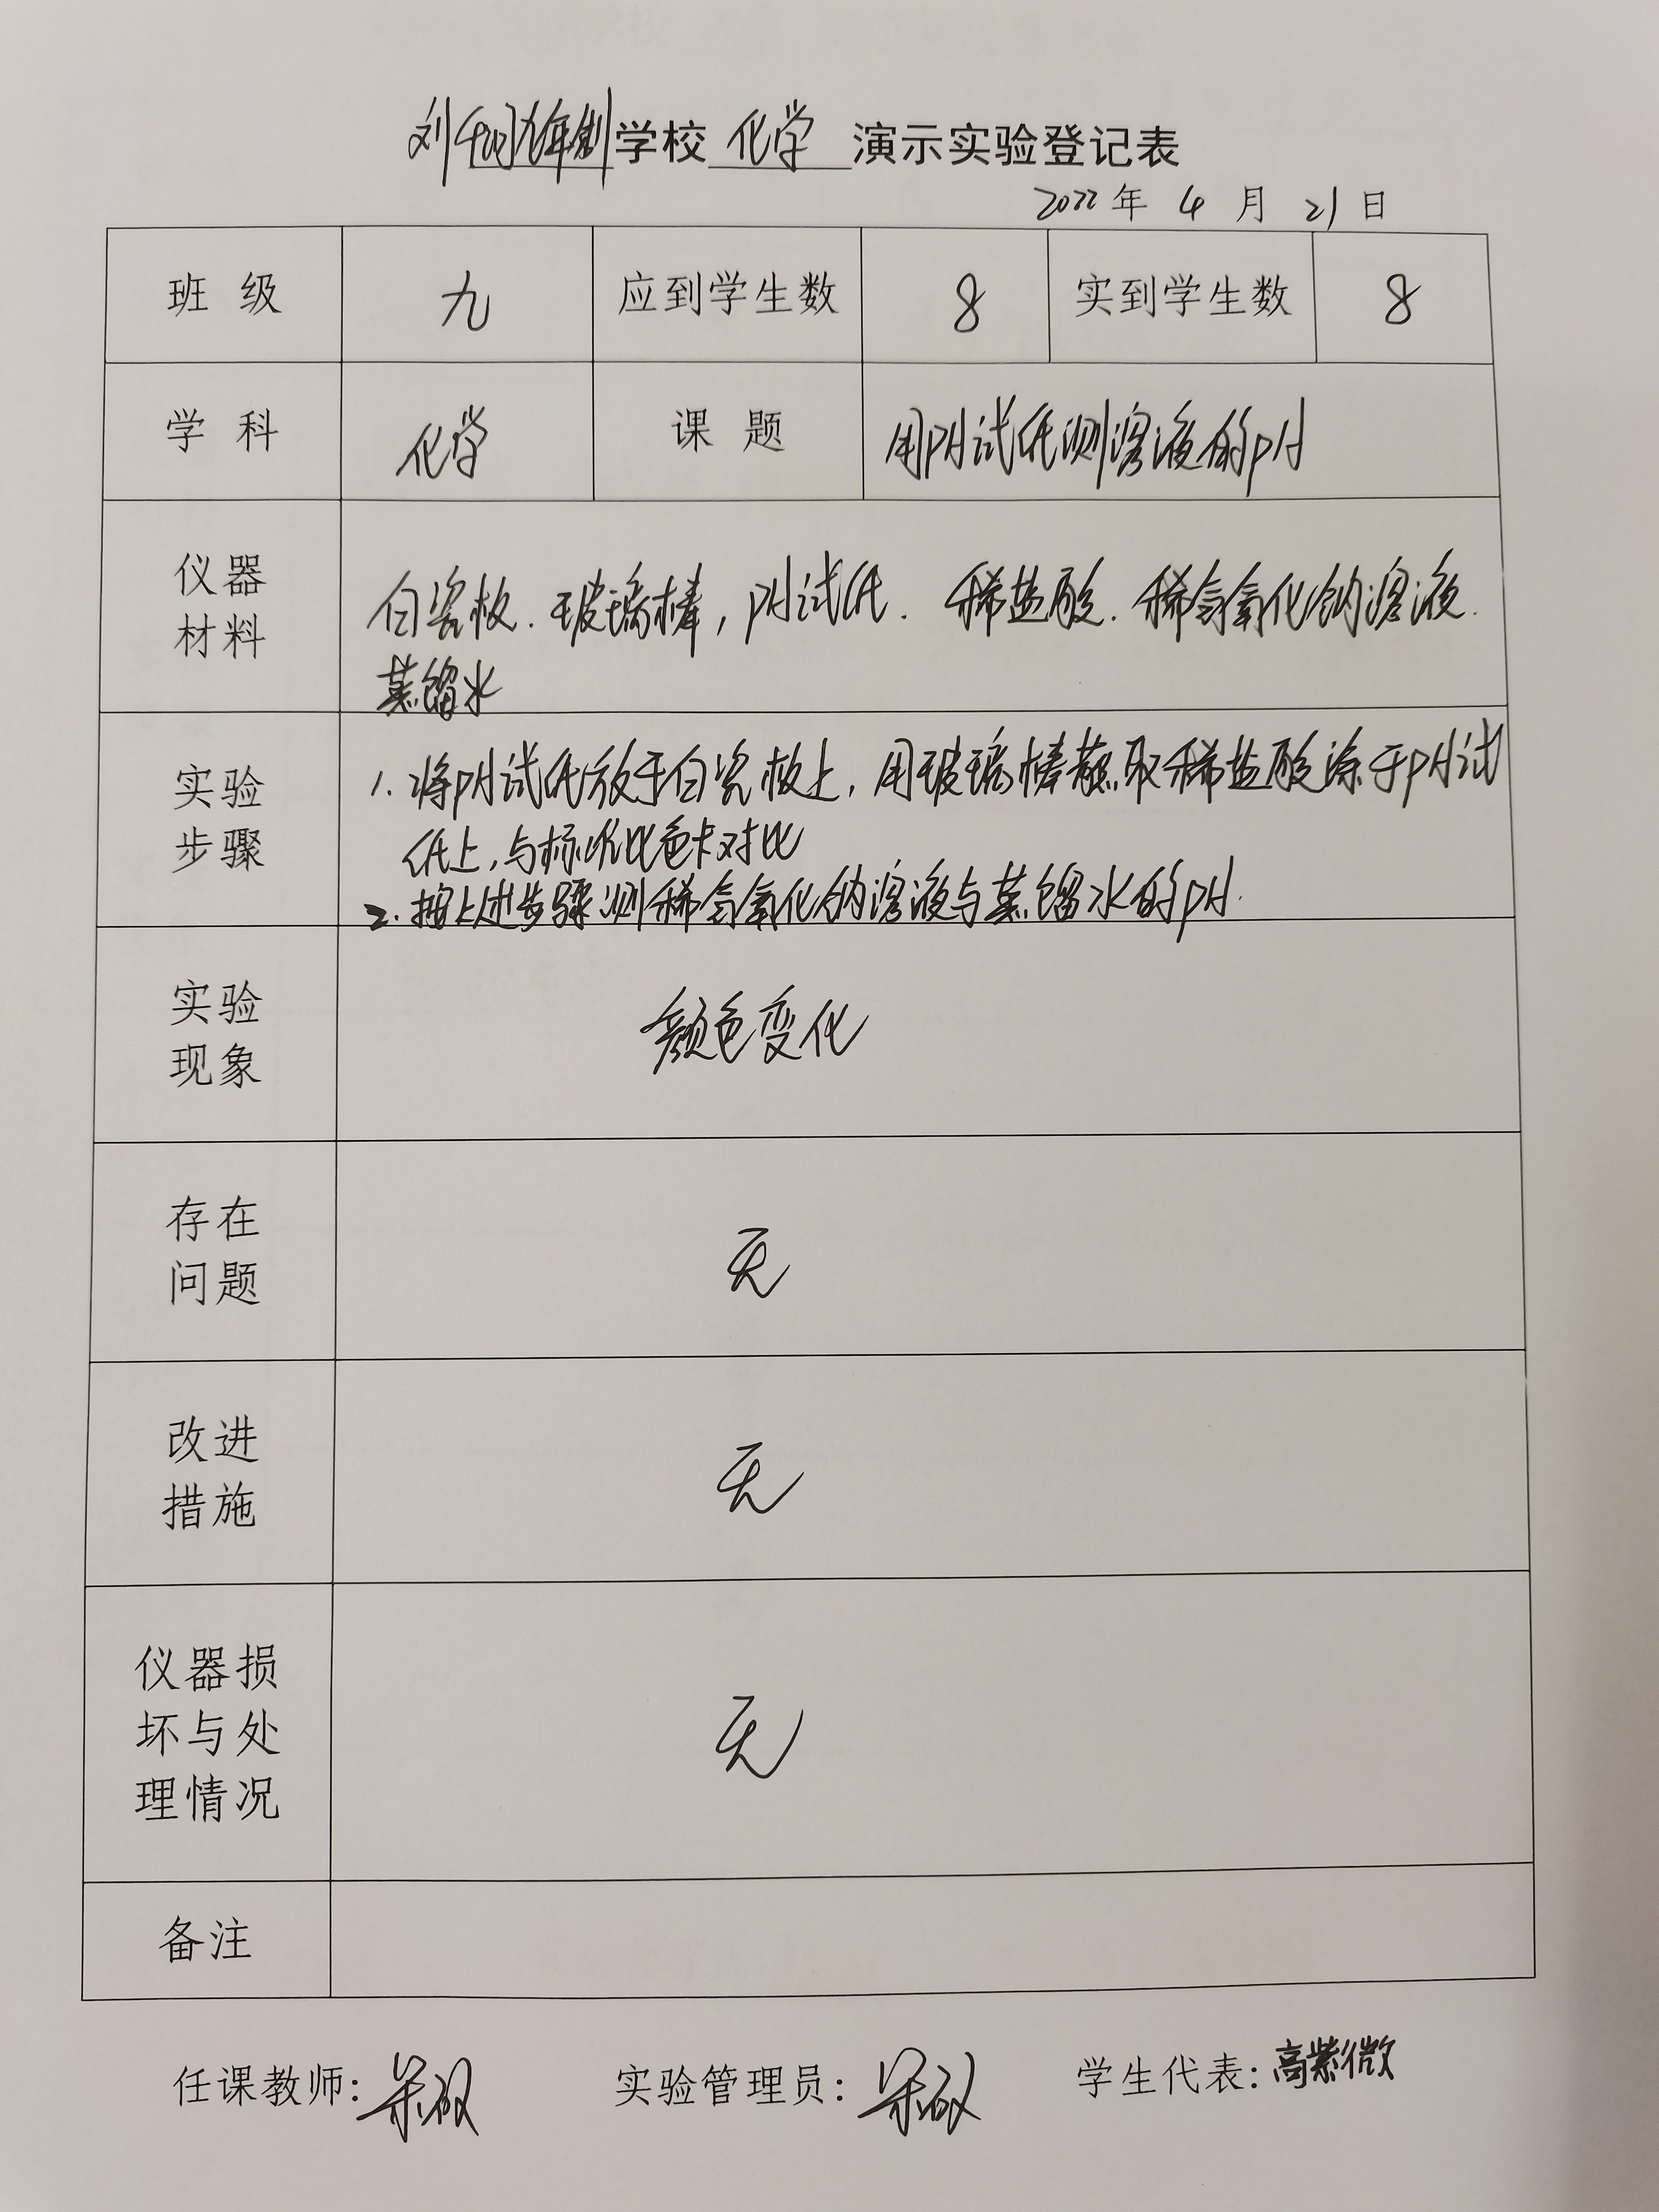 刘千河九年制学校 化学 演示实验登记表
2022年 4 月 21 日
班 级 九 应到学生数 8 实到学生数 8
学 科 化学 课 题 用pH试纸测溶液的pH
仪器
材料
白瓷板.玻璃棒,pH试纸.稀盐酸.稀氢氧化钠溶液.
蒸馏水
实验
步骤
1.将pH试纸放于白瓷板上,用玻璃棒蘸取稀盐酸涂于pH试
纸上,与标准比色卡对比
2.按上述步骤测稀氢氧化钠溶液与蒸馏水的pH.
实验
现象
颜色变化
存在
问题
无
改进
措施
无
仪器损
坏与处
理情况
无
备注
任课教师: 实验管理员: 学生代表:高紫微